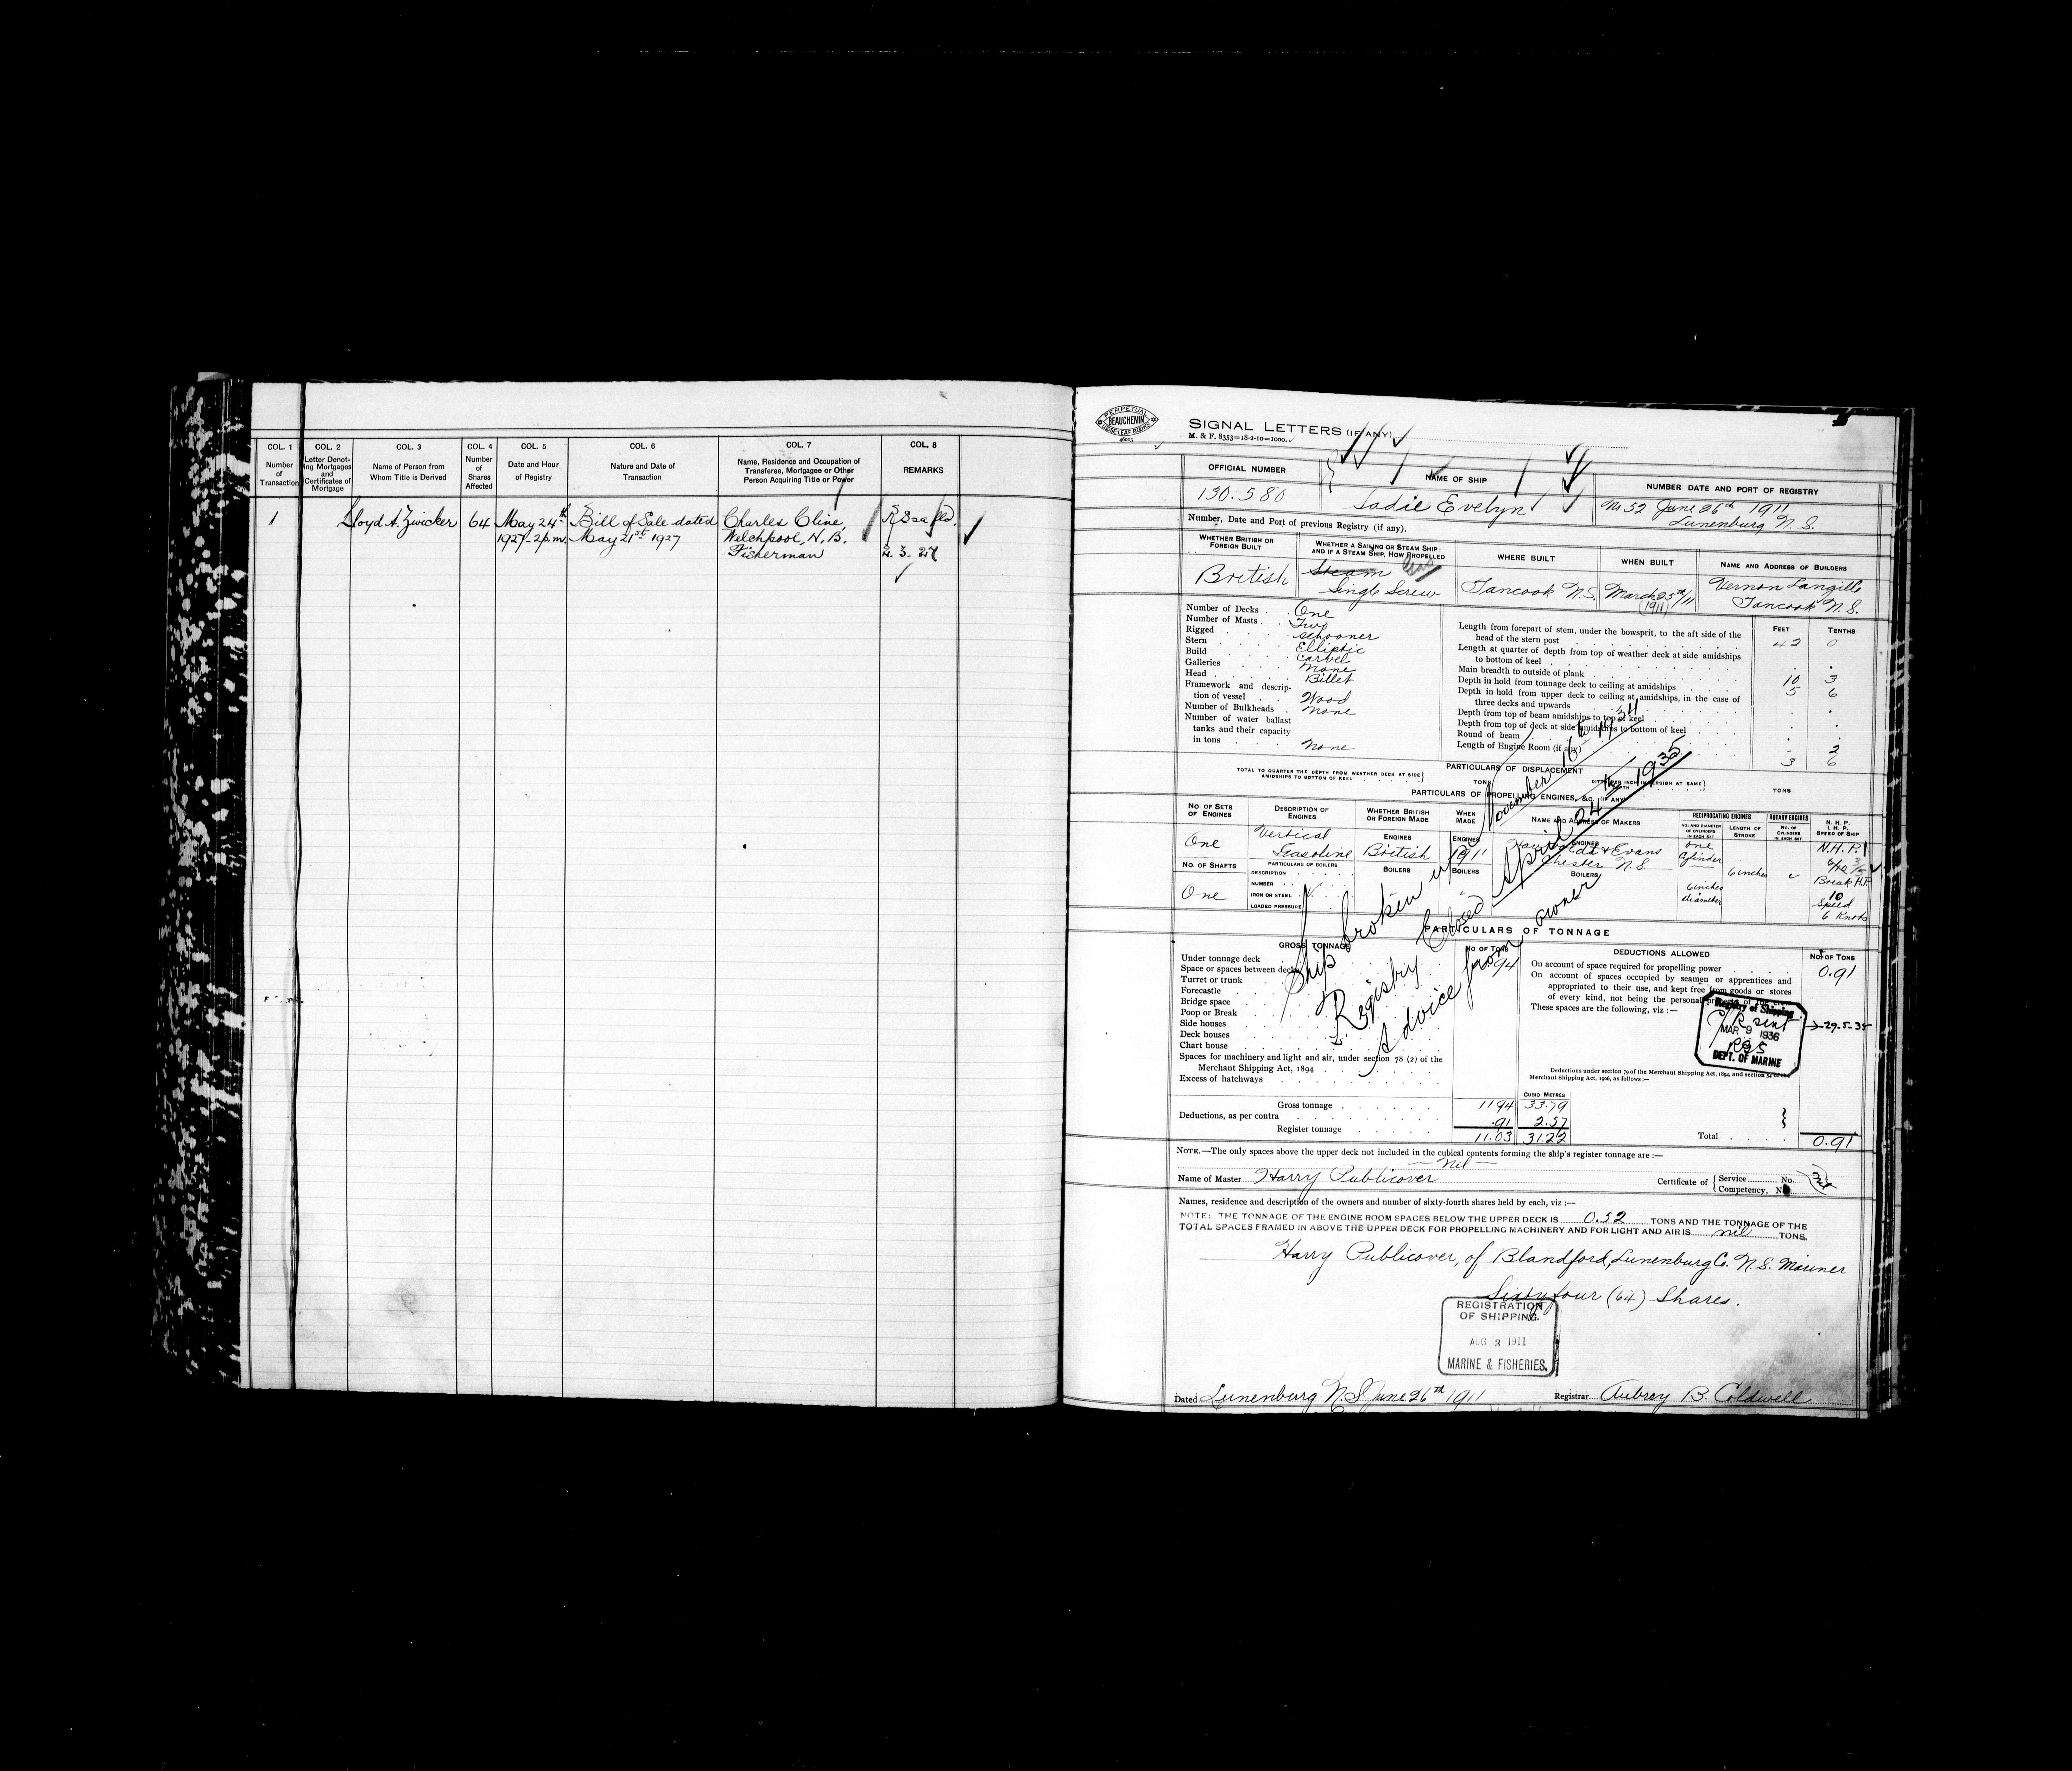 COL. 1
Number
of
Transaction
COL. 2
Letter Denot-
ing Mortgages
and
Certificates of
Mortgage
COL. 3
Name of Person from
Whom Title is Derived
COL. 4
Number
of
Shares
Affected
COL. 5
Date and Hour
of Registry
COL. 6
Nature and Date of
Transaction
COL. 7
Name, Residence and Occupation of
Transferee, Mortgagee or Other
Person Acquiring Title or Power
COL. 8
REMARKS
1
Lloyd A. Zwicker
64
May 24th
1927-2 p.m.
Bill of Sale dated
May 21st 1927
Charles Cline,
Welchpool, N.B.
Fisherman
2. 3. 27
PERPETUAL
BEAUCHEMIN
LOOSE-LEAF BOOKS
SIGNAL LETTERS (IF ANY)
M. & F. 8353=18-2-10=1000.
OFFICIAL NUMBER
130.580
NAME OF SHIP
Sadie Evelyn
NUMBER DATE AND PORT OF REGISTRY
No 52 June 26th 1911
Lunenburg N.S.
Number, Date and Port of previous Registry (if any).
WHETHER BRITISH OR
FOREIGN BUILT
British
WHETHER A SAILING OR STEAM SHIP:
AND IF A STEAM SHIP, HOW PROPELLED
Steam Gas
Single Screw
WHERE BUILT
Tancook N.S.
WHEN BUILT
March 25th/11
(1911)
NAME AND ADDRESS OF BUILDERS
Vernon Langille
Tancook N.S.
Number of Decks . One
Number of Masts . . Two
Rigged . schooner
Stern . Elliptic
Build . carvel
Galleries . None
Head . Billet
Framework and descrip-
tion of vessel . Wood
Number of Bulkheads . None
Number of water ballast
tanks and their capacity
in tons . . None
FEET TENTHS
Length from forepart of stem, under the bowsprit, to the aft side of the
head of the stern post 42 0
Length at quarter of depth from top of weather deck at side amidships
to bottom of keel
Main breadth to outside of plank 10 3
Depth in hold from tonnage deck to ceiling at amidships 5 6
Depth in hold from upper deck to ceiling at amidships, in the case of
three decks and upwards
Depth from top of beam amidships to top of keel
Depth from top of deck at side amidships to bottom of keel
Round of beam - 2
Length of Engine Room (if any) 3 6
PARTICULARS OF DISPLACEMENT
TOTAL TO QUARTER THE DEPTH FROM WEATHER DECK AT SIDE
AMIDSHIPS TO BOTTOM OF KEEL
TONS
TONS
PARTICULARS OF PROPELLING ENGINES, &C. (IF ANY)
NO. OF SETS
OF ENGINES
One
NO. OF SHAFTS
One
DESCRIPTION OF
ENGINES
Vertical
Gasoline
PARTICULARS OF BOILERS
DESCRIPTION
NUMBER
IRON OR STEEL
LOADED PRESSURE
WHETHER BRITISH
OR FOREIGN MADE
ENGINES
British
BOILERS
WHEN
MADE
ENGINES
1911
BOILERS
NAME AND ADDRESS OF MAKERS
ENGINES
& Evans
Chester N.S.
BOILERS
RECIPROCATING ENGINES
NO. AND DIAMETER
OF CYLINDERS
IN EACH SET
One
Cylinder
6 inches
diameter
LENGTH OF
STROKE
6 inches
ROTARY ENGINES
NO. OF
CYLINDERS
IN EACH SET
N. H. P.
I. H. P.
SPEED OF SHIP
N.H.P.
Break H.P.
10
Speed
6 Knots
Ship broken up November 16th 1934
Registry Closed April 24th 1935
Advice from owner
PARTICULARS OF TONNAGE
GROSS TONNAGE
NO OF TONS
Under tonnage deck 11.94
Space or spaces between decks
Turret or trunk
Forecastle
Bridge space
Poop or Break
Side houses
Deck houses
Chart house
Spaces for machinery and light and air, under section 78 (2) of the
Merchant Shipping Act, 1894
Excess of hatchways
DEDUCTIONS ALLOWED
NO. OF TONS
On account of space required for propelling power 0.91
On account of spaces occupied by seamen or apprentices and
appropriated to their use, and kept free from goods or stores
of every kind, not being the personal property of the crew
These spaces are the following, viz :—
Registry of Shipping
sent
MAR 9 1936
DEPT. OF MARINE
29-5-35
Deductions under section 79 of the Merchant Shipping Act, 1894, and section 54 of the
Merchant Shipping Act, 1906, as follows:—
CUBIC METRES
Gross tonnage 11.94 33.79
Deductions, as per contra .91 2.57
Register tonnage 11.03 31.22
Total 0.91
NOTE.—The only spaces above the upper deck not included in the cubical contents forming the ship's register tonnage are :—
— Nil —
Name of Master Harry Publicover
Certificate of { Service No.
Competency, No.
Nil
Names, residence and description of the owners and number of sixty-fourth shares held by each, viz :—
NOTE: THE TONNAGE OF THE ENGINE ROOM SPACES BELOW THE UPPER DECK IS 0.52 TONS AND THE TONNAGE OF THE
TOTAL SPACES FRAMED IN ABOVE THE UPPER DECK FOR PROPELLING MACHINERY AND FOR LIGHT AND AIR IS nil TONS.
Harry Publicover, of Blandford, Lunenburg Co. N.S. Mariner
Sixty four (64) Shares.
REGISTRATION
OF SHIPPING
AUG 3 1911
MARINE & FISHERIES.
Dated Lunenburg N.S. June 26th 1911
Registrar Aubrey B. Coldwell